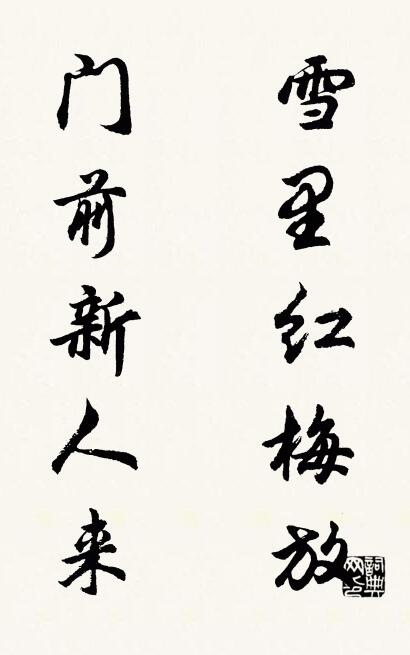 雪里红梅放
门前新人来
詞典网印